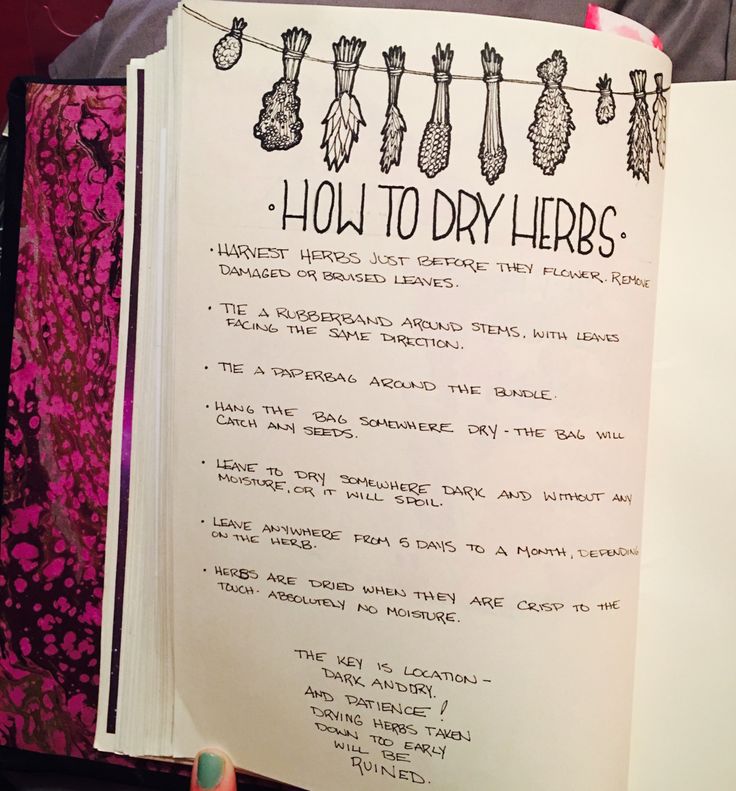 • HOW TO DRY HERBS •
• HARVEST HERBS JUST BEFORE THEY FLOWER. REMOVE
DAMAGED OR BRUISED LEAVES.
• TIE A RUBBERBAND AROUND STEMS, WITH LEAVES
FACING THE SAME DIRECTION.
• TIE A PAPERBAG AROUND THE BUNDLE.
• HANG THE BAG SOMEWHERE DRY - THE BAG WILL
CATCH ANY SEEDS.
• LEAVE TO DRY SOMEWHERE DARK AND WITHOUT ANY
MOISTURE, OR IT WILL SPOIL.
• LEAVE ANYWHERE FROM 5 DAYS TO A MONTH, DEPENDING
ON THE HERB.
• HERBS ARE DRIED WHEN THEY ARE CRISP TO THE
TOUCH. ABSOLUTELY NO MOISTURE.
THE KEY IS LOCATION -
DARK AND DRY.
AND PATIENCE!
DRYING HERBS TAKEN
DOWN TOO EARLY
WILL BE
RUINED.